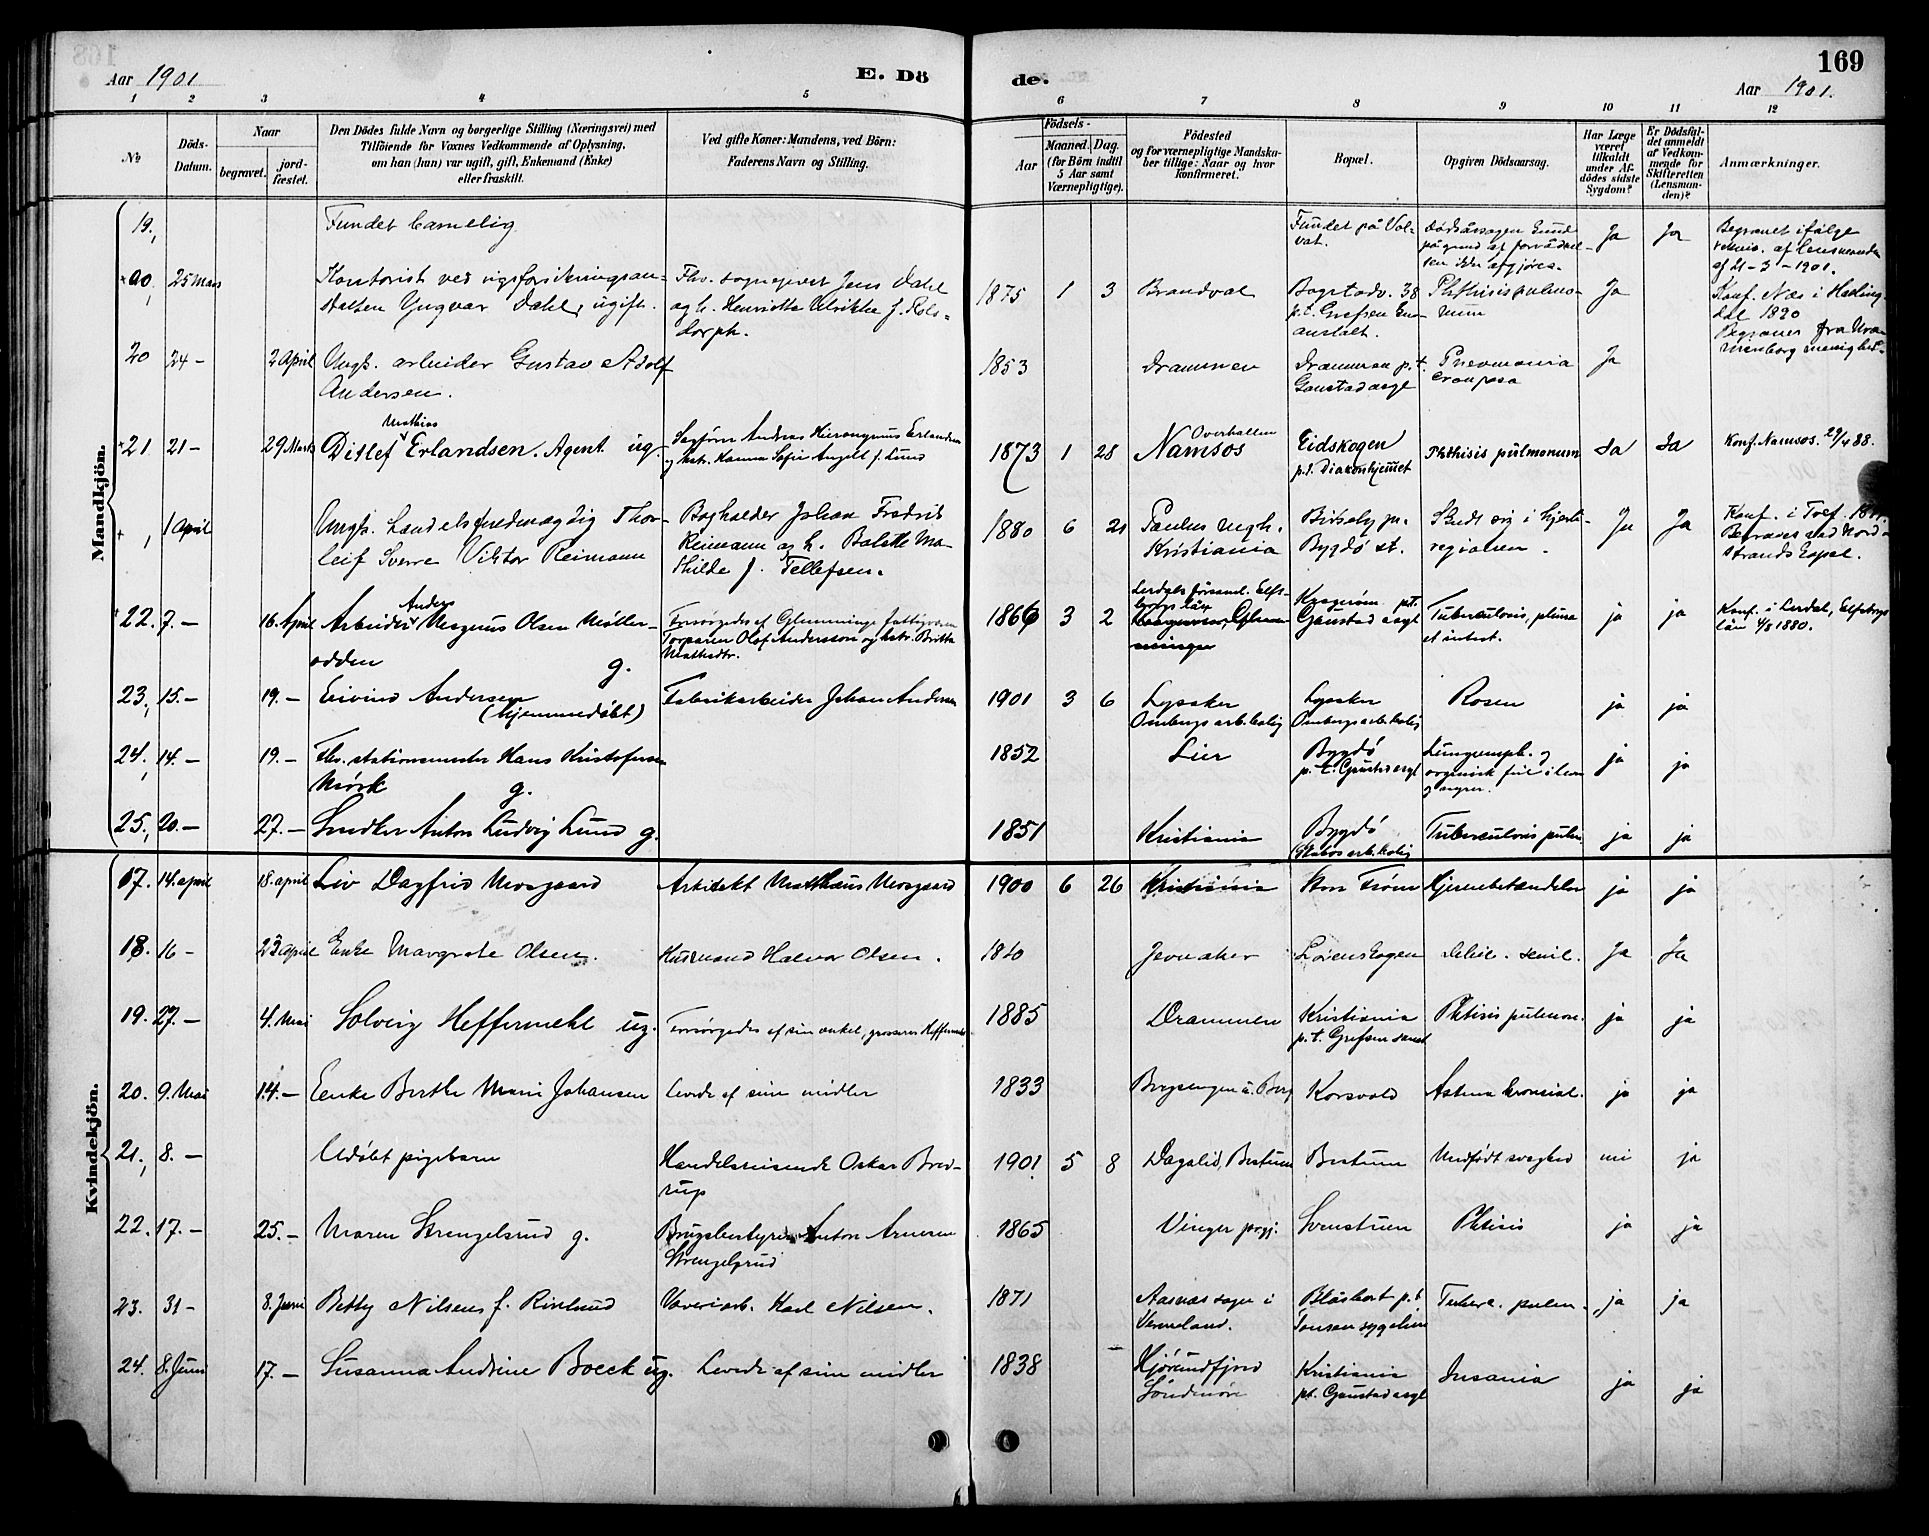 169
Aar 1901
E. Dö
de.
Aar 1901.
1 2 3 4 5 6 7 8 9 10 11 12
№
Döds-
Datum.
Naar
begravet.
jord-
fæstet.
Den Dödes fulde Navn og borgerlige Stilling (Næringsvei) med
Tilföiende for Voxnes Vedkommende af Oplysning,
om han (hun) var ugift, gift, Enkemand (Enke)
eller fraskilt.
Ved gifte Koner: Mandens, ved Börn:
Faderens Navn og Stilling.
Födsels-
Aar
Maaned. Dag.
(for Börn indtil
5 Aar samt
Værnepligtige).
Födested
og for værnepligtige Mandska-
ber tillige: Naar og hvor
konfirmeret.
Bopæl.
Opgiven Dödsaarsag.
Har Læge
været
tilkaldt
under Af-
dödes sidste
Sygdom?
Er Dödsfal-
det anmeldt
af Vedkom-
mende for
Skifteretten
(Lensman-
den)?
Anmærkninger.
Mandkjön.
19, Fundet Fundet på Vol- dødsårsagen Ja Ja Begravet ifølge
vat. på grund af af lensmanden
sen ikke afgjøres. af 21-3-1901.
20, 25 Mars Kontorist ved Fhv. sogneprest Jens Dahl 1875 1 3 Brandval Bogstadv. 38 Phthisis pulmo- Ja Konf. Næs i Halling-
stalten Yngvar Dahl, ugift. og h. Henriette Ulrikke f. Rols- p.t. Grefsen num dal 1890
dorph. anstalt. Begraves fra Ura-
nienborg menighed.
20 24- 2 April Ungk. arbeider Gustav Adolf 1853 Drammen Drammen p.t. Pneumonia Ja
Andersen. Gaustad asyl crouposa
21 21- 29 Marts Ditlef Mathias Erlandsen. Agent ug. Sagfører Andreas Hieronymus Erlandsen 1873 1 28 Overhallen Namsos Eidskogen Phthisis pulmonum Ja Ja Konf. Namsos. 29/4 88.
og hstr. Hanna Sofie Angell f. Lund p.t. Diakonhjemmet
1 April Ungk. handelsfuldmægtig Thor- Bogholder Johan Fredrik 1880 6 21 Paulus mgh. Skudt sig i hjerte- Ja Ja Konf. i
leif Sverre Viktor Reimann Reimann og h. Ma- Kristiania Bygdø st. regionen. Begraves ved Nord-
thilde f. Tellefsen. strands Capel.
22. 7.- 16. April Arbeider Anders Magnus Olsen Møller- Forsørgedes af Glemminge fattigvæsen 1866 3 2 Lerdals forsaml. Elfs- p.t. Tuberculosis, ja ja Konf. i Lerdal, Elfsborgs
odden g. Torparen Olof Andersson og hstr. Britta borgs län Gaustad asyl et intest. län 4/8 1880.
23, 15.- 19.- Eivind Andersen Fabrikarbeider Johan Andersen 1901 3 6 Lysaker Lysaker Rosen ja ja
(hjemmedøbt) arb.bolig arb.bolig
24, 14.- 19.- Fhv. stationsmester Hans Kristofersen 1852 Lier Bygdø og ja ja
Mörk g. p.t. Gaustad asyl organisk feil i
25, 20.- 27.- Snedker Anton Ludvig Lund g. 1851 Kristiania Bygdø Tuberculosis pulm. ja ja
arb.bolig
Kvindekjön.
17. 14. april 18. april Liv Dagfrid Mosgaard Arkitekt Matthæus Mosgaard 1900 6 26 Kristiania Store Frøen Hjernebetændelse ja ja
18. 16- 23 april Enke Margrete Olsen. Husmand Halvor Olsen. 1810 Jevnaker Lørenskogen Debil. senil. Ja Ja
19. 27.- 4. Mai Solveig Heffermehl ug. Forsørgedes af sin onkel, grosserer Heffermehl 1885 Drammen Kristiania Phtisis pulmon. ja ja
p.t. Grefsen sanat
20. 9. Mai 14.- Enke Berthe Marie Johansen Levede af sine midler 1833 Korsvold Astma bronchial. ja ja
21, 8.- Udøbt pigebarn Handelsreisende Oskar Bred- 1901 5 8 Dagalid, Bestum Bestum Medfødt svaghed nei ja
rup
22. 17.- 25.- Maren Strengelsrud g. Brugsbestyrer Anton Arnesen 1865 Vinger prgj. Phtisis ja ja
Strengelsrud
23. 31- 8. Juni Betty Nilsen f. Væveriarb. Karl Nilsen. 1871 sogn i p.t. Tuberc. pulm. ja ja
Vermeland. Tonsen sygehus
24. 8. Juni 17.- Susanna Andrine Boeck ug. Levede af sine midler 1838 Hjørundfjord Kristiania Insania ja ja
Søndmøre p.t. Gaustad asyl